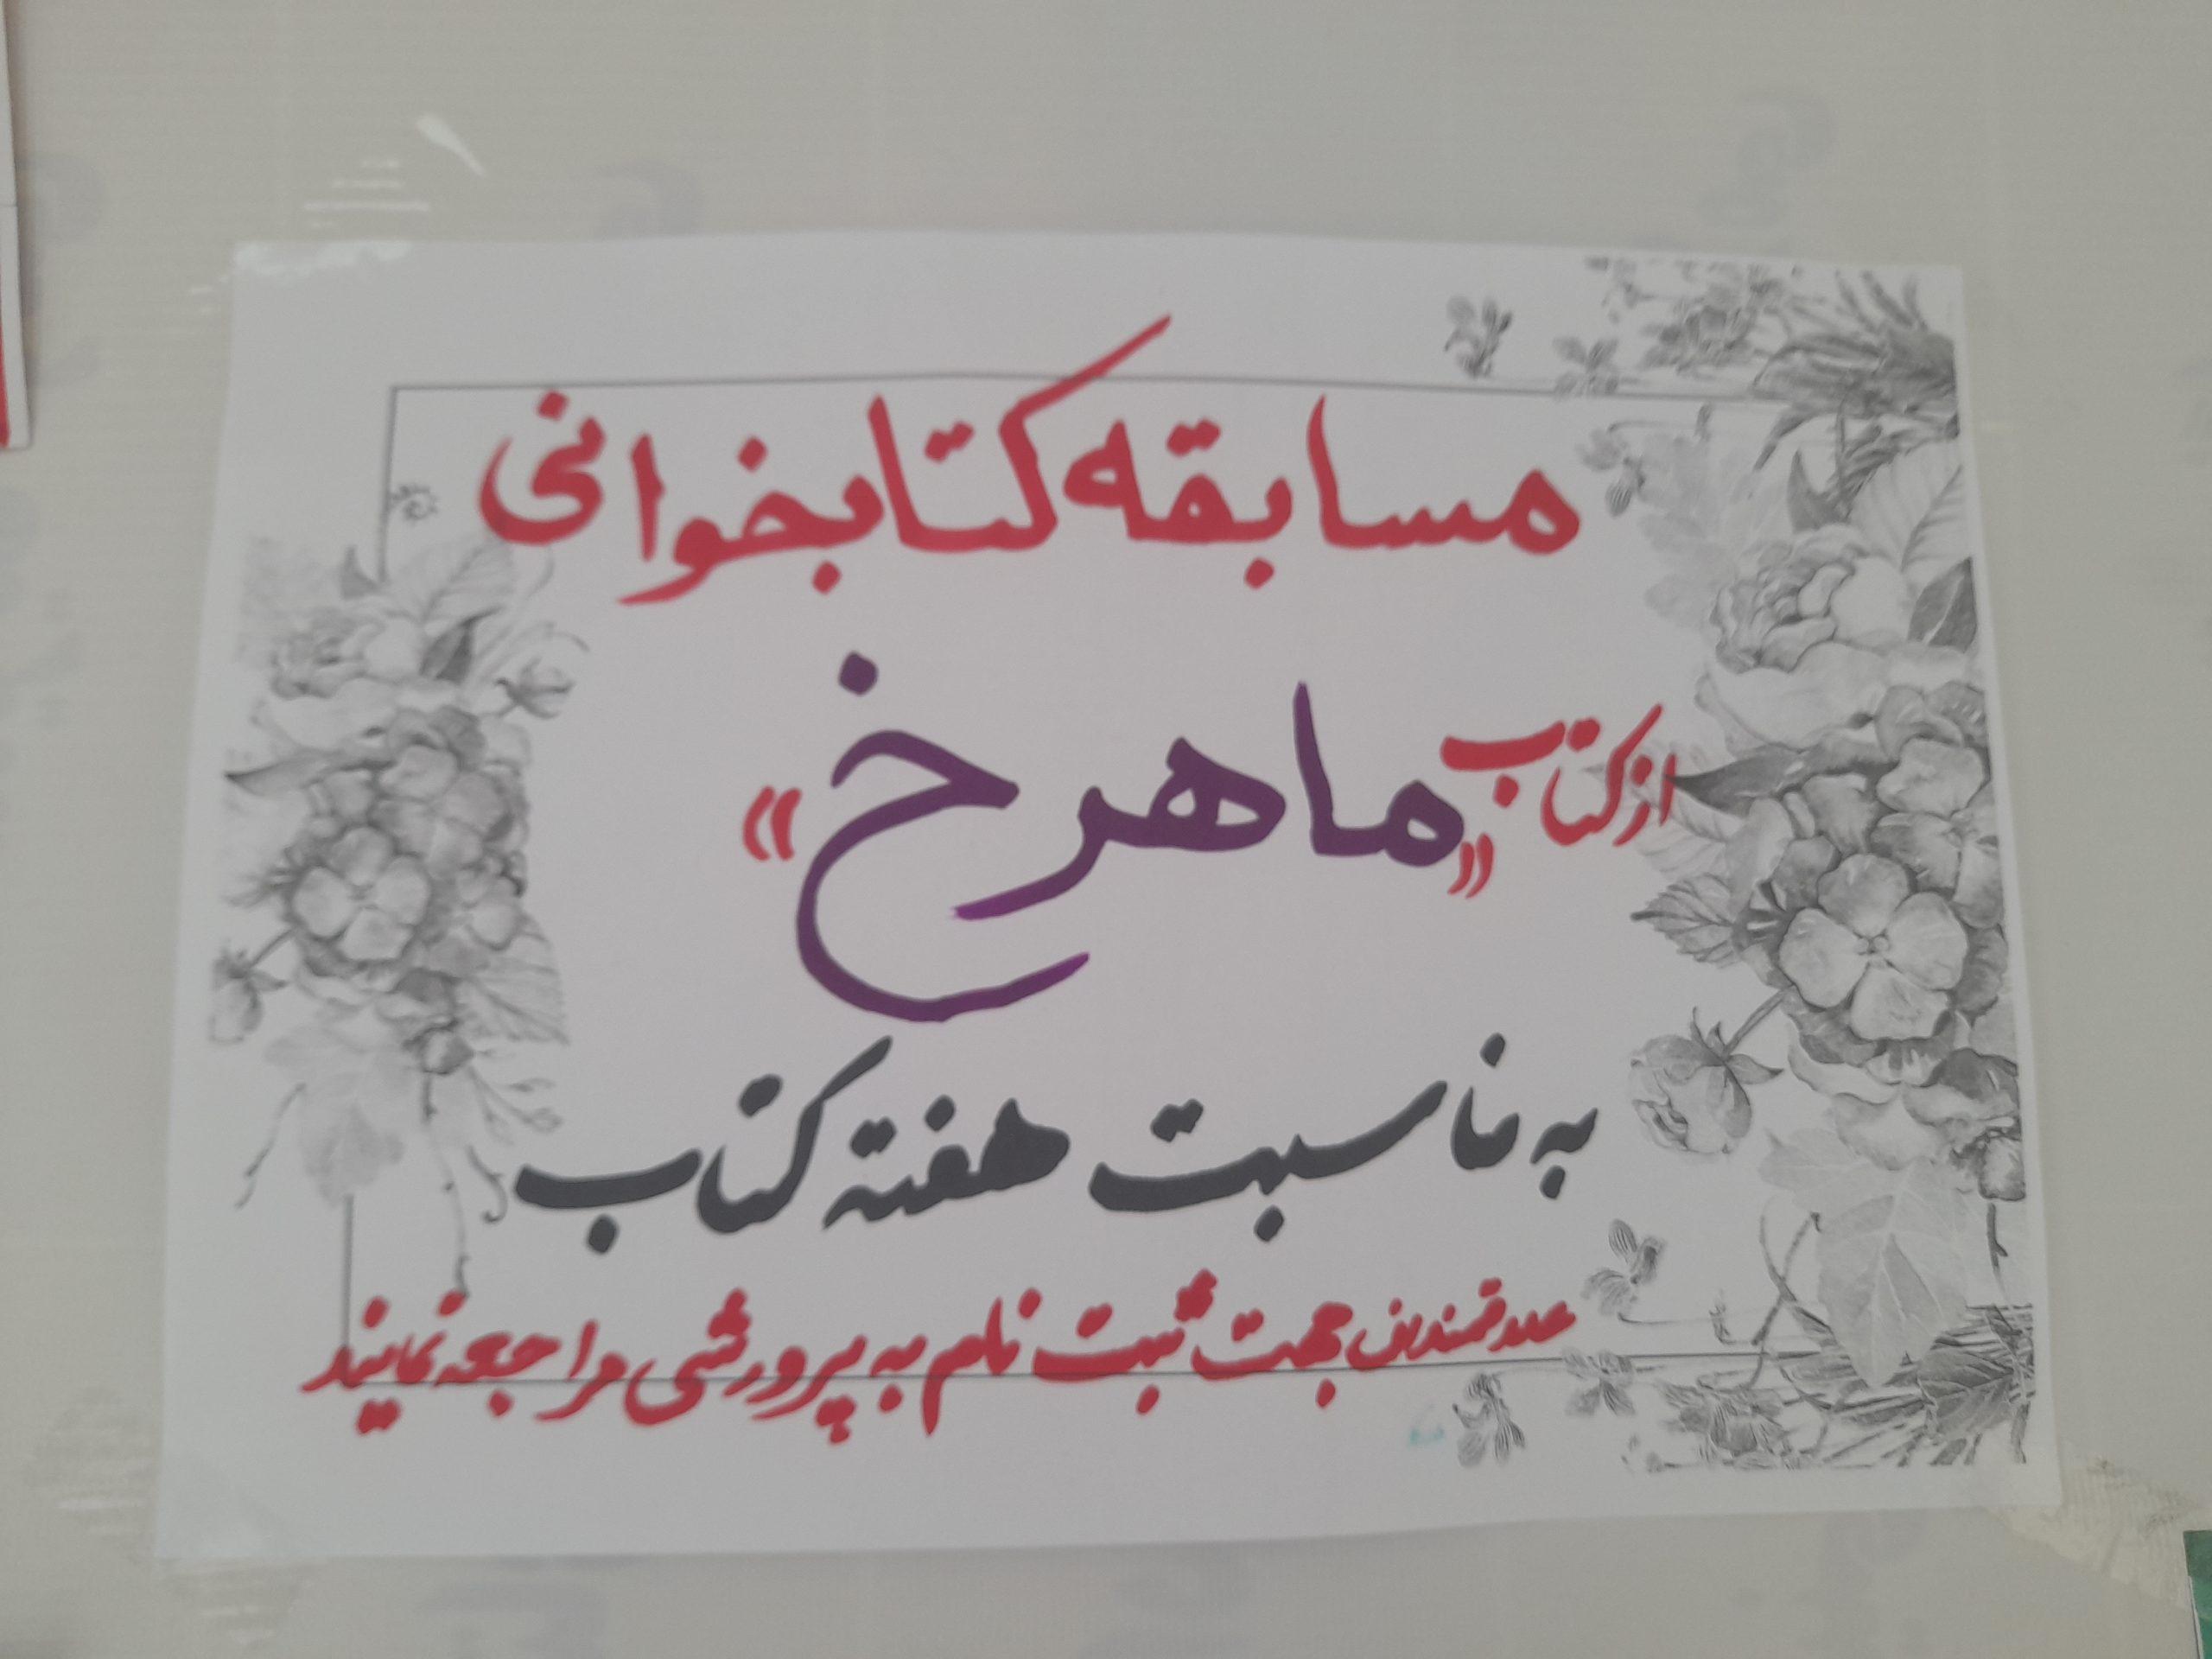 مسابقه کتابخوانی
از کتاب «ماهرخ»
به مناسبت هفته کتاب
علاقمندان جهت ثبت نام به پرورشی مراجعه نمایند